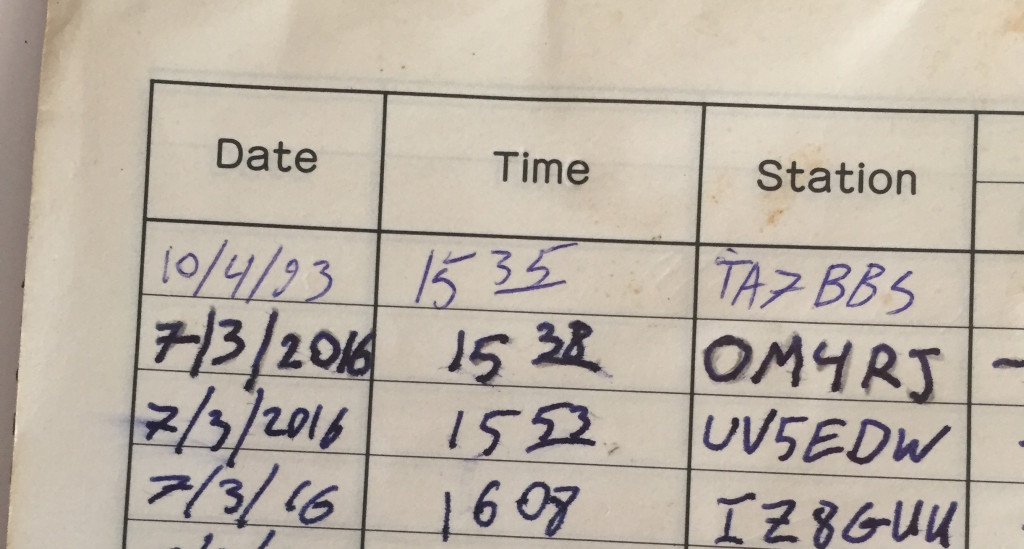 Date Time Station
10/4/93 1535 TA7BBS
7/3/2016 1538 OM4RJ
7/3/2016 1553 UV5EDW
7/3/16 1608 IZ8GUU